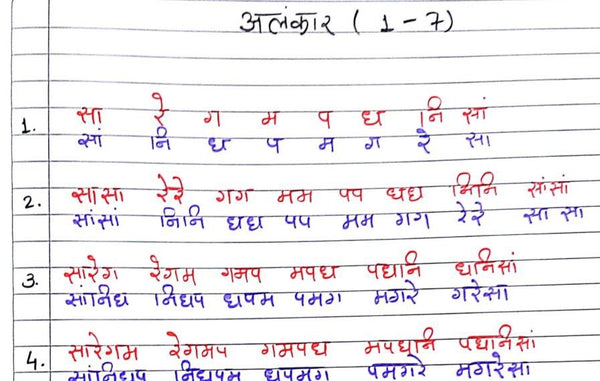 अलंकार ( 1 - 7 )
1. सा रे ग म प ध नि सां
सां नि ध प म ग रे सा
2. सासा रेरे गग मम पप धध निनि सांसां
सांसां निनि धध पप मम गग रेरे सासा
3. सारेग रेगम गमप मपध पधनि धनिसां
सांनिध निधप धपम पमग मगरे गरेसा
4. सारेगम रेगमप गमपध मपधनि पधनिसां
सांनिधप निधपम धपमग पमगरे मगरेसा